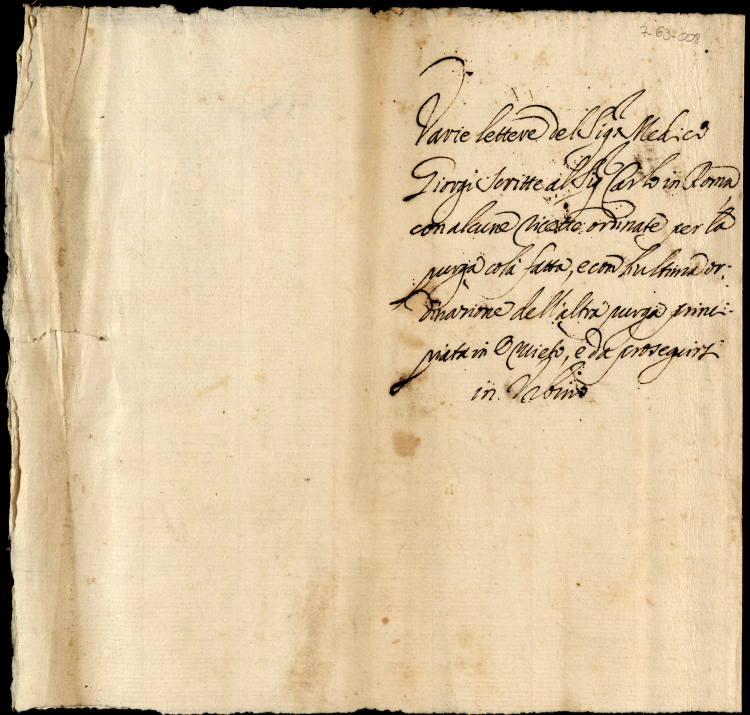 7-63-008
Varie lettere del Sig.r Medico
Giorgi scritte al Sig.r Carlo in Roma,
con alcune ricette ordinate per la
purga colà fatta, e con l'ultima or-
dinazione dell'altra purga princi-
piata in, e da proseguirsi
in Urbino